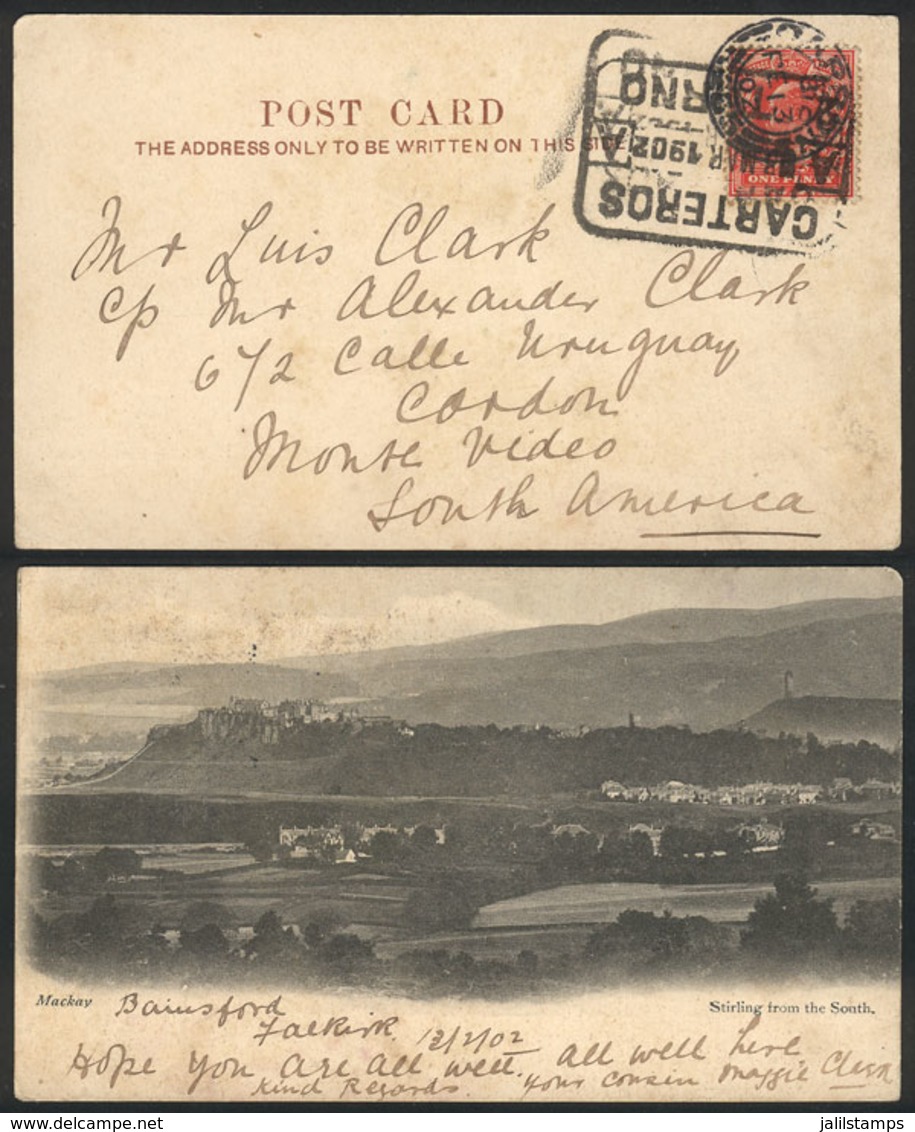 POST CARD
THE ADDRESS ONLY TO BE WRITTEN ON THIS SIDE
CARTEROS
MAR 1902
ONE PENNY
Mr Luis Clark
c/o Mr Alexander Clark
672 Calle Uruguay
Cordon
Monte Video
South America
Mackay
Stirling from the South.
Bainsford
Falkirk 13/2/02
Hope you are all well. all well here
Kind Regards your cousin Maggie Clark
jalilstamps